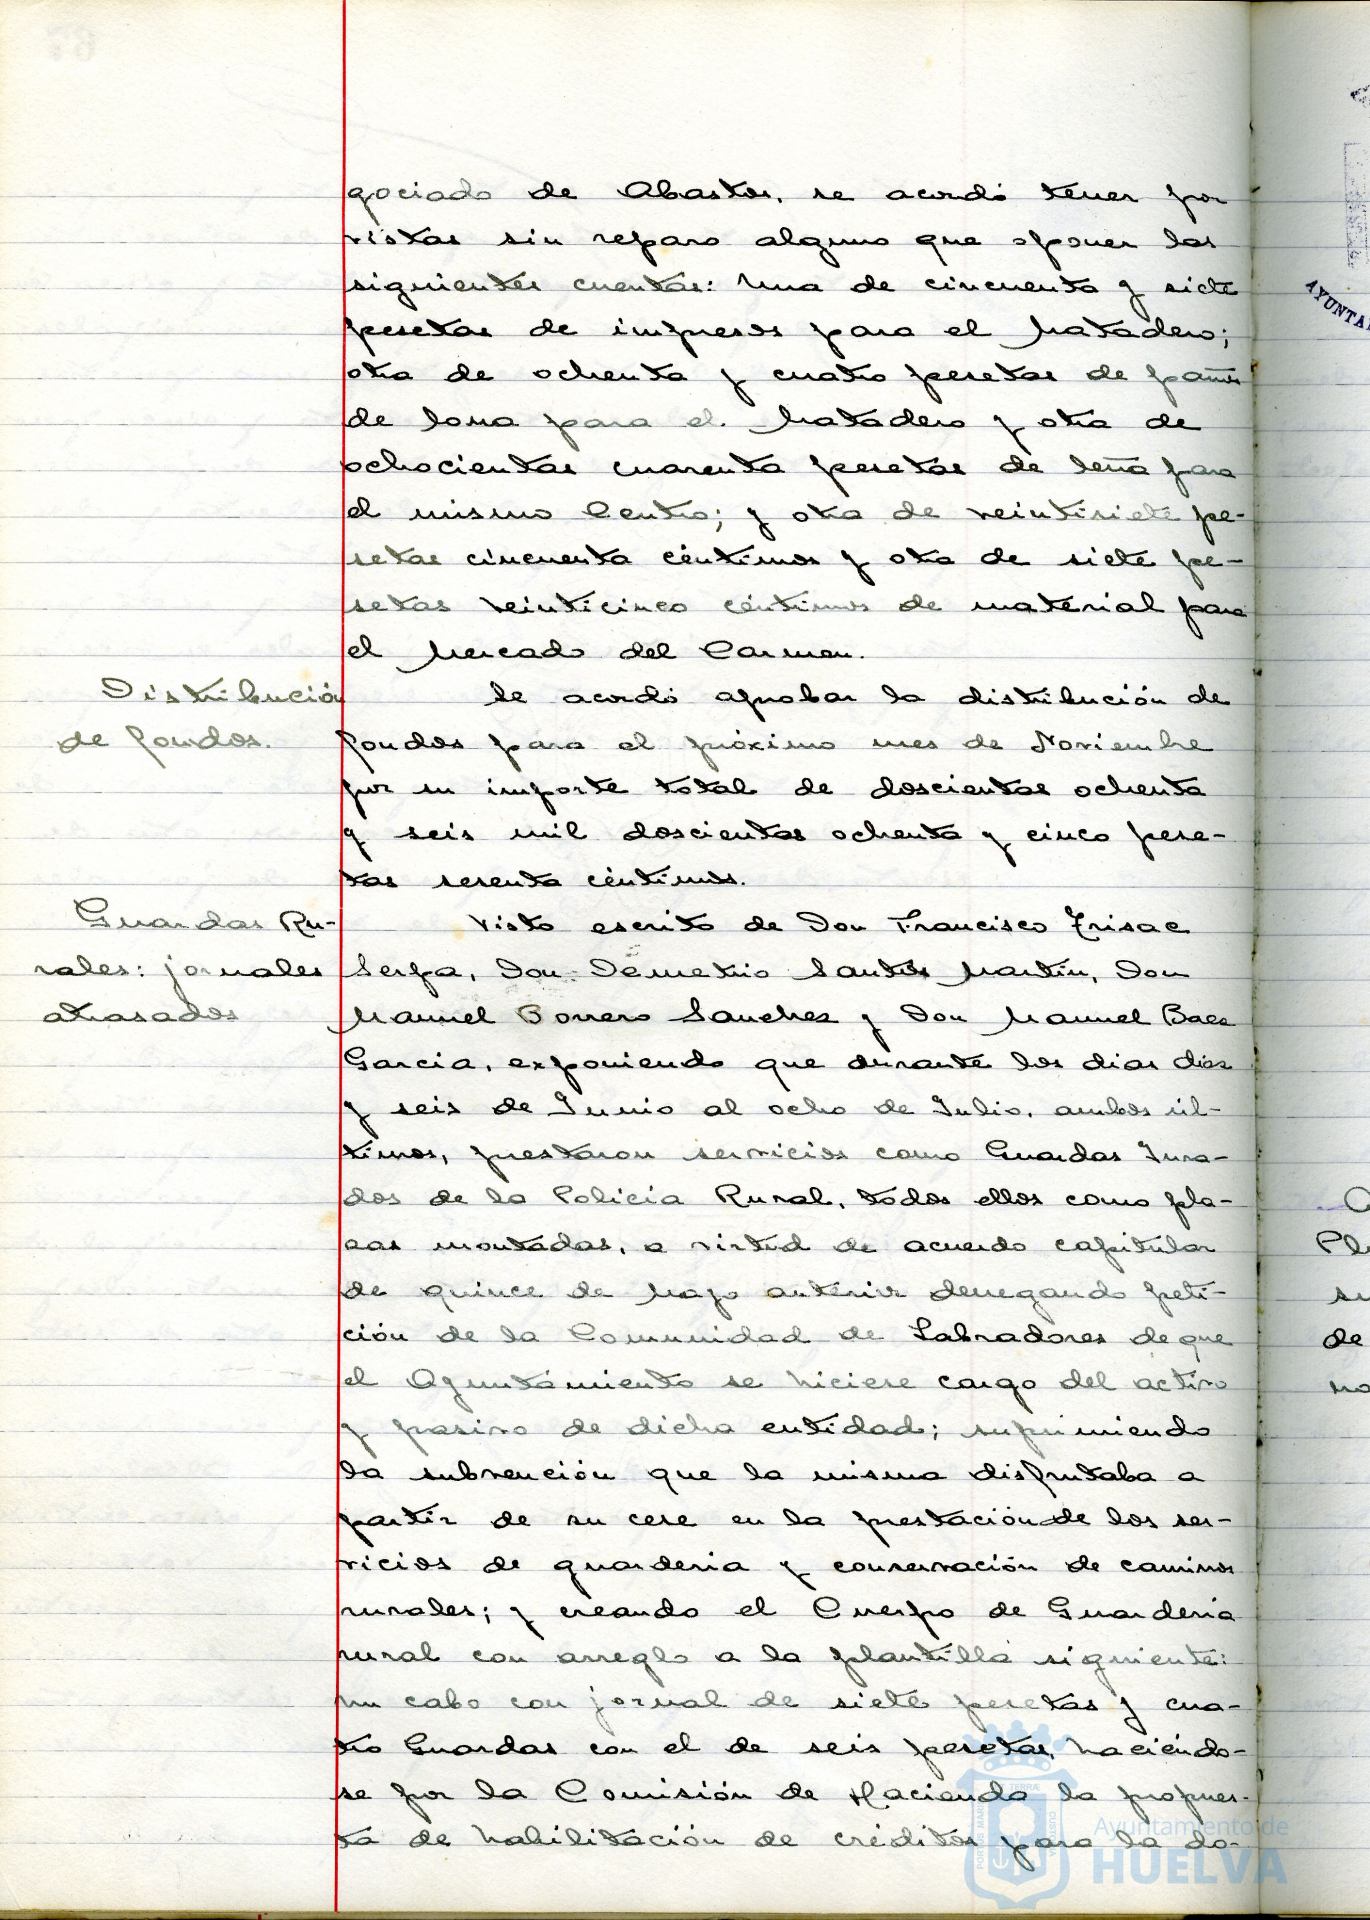 gociado de Abastos, se acordó tener por
vistas sin reparo alguno que oponer las
siguientes cuentas: Una de cincuenta y siete
pesetas de impresos para el Matadero;
otra de ochenta y cuatro pesetas de paños
de lona para el Matadero y otra de
ochocientas cuarenta pesetas de leña para
el mismo Centro; y otra de veintisiete pe-
setas cincuenta céntimos y otra de siete pe-
setas veinticinco céntimos de material para
el Mercado del Carmen.
Distribución
de fondos.
Se acordó aprobar la distribución de
fondos para el próximo mes de Noviembre
por su importe total de doscientas ochenta
y seis mil doscientas ochenta y cinco pese-
tas sesenta céntimos.
Guardas Ru-
rales: jornales
atrasados
Visto escrito de Don Francisco
Serpa, Don Demetrio Santos Martín, Don
Manuel Borrero Sanchez y Don Manuel Baez
Garcia, exponiendo que durante los dias diez
y seis de Junio al ocho de Julio, ambos úl-
timos, prestaron servicios como Guardas Jura-
dos de la Policia Rural, todos ellos como pla-
zas montadas, a virtud de acuerdo capitular
de quince de Mayo anterior denegando peti-
ción de la Comunidad de Labradores de que
el Ayuntamiento se hiciese cargo del activo
y pasivo de dicha entidad; suprimiendo
la subvención que la misma disfrutaba a
partir de su cese en la prestación de los ser-
vicios de guarderia y conservación de caminos
rurales; y creando el Cuerpo de Guarderia
rural con arreglo a la plantilla siguiente:
un cabo con jornal de siete pesetas y cua-
tro Guardas con el de seis pesetas, haciéndo-
se por la Comisión de Hacienda la propues-
ta de habilitación de créditos para la do-
Ayuntamiento de
HUELVA
AYUNTA
de